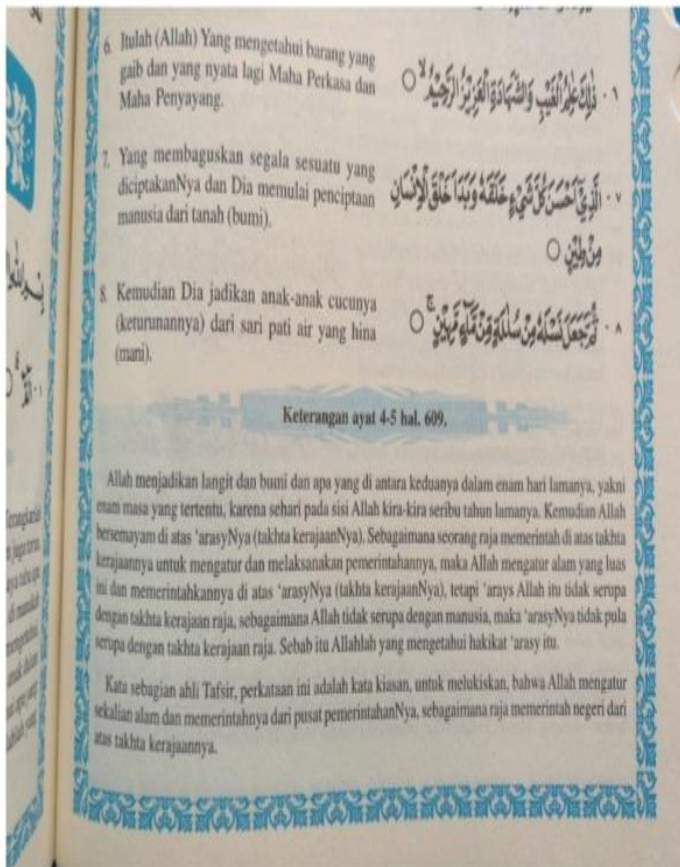 6. Itulah (Allah) Yang mengetahui barang yang
gaib dan yang nyata lagi Maha Perkasa dan
Maha Penyayang.
٦ - ذٰلِكَ عٰلِمُ الْغَيْبِ وَالشَّهَادَةِ الْعَزِيْزُ الرَّحِيْمُ ۙ
7. Yang membaguskan segala sesuatu yang
diciptakanNya dan Dia memulai penciptaan
manusia dari tanah (bumi).
٧ - الَّذِيْٓ اَحْسَنَ كُلَّ شَيْءٍ خَلَقَهٗ وَبَدَاَ خَلْقَ الْاِنْسَانِ
مِنْ طِيْنٍ
8. Kemudian Dia jadikan anak-anak cucunya
(keturunannya) dari sari pati air yang hina
(mani).
٨ - ثُمَّ جَعَلَ نَسْلَهٗ مِنْ سُلٰلَةٍ مِّنْ مَّاۤءٍ مَّهِيْنٍ ۚ
Keterangan ayat 4-5 hal. 609.
Allah menjadikan langit dan bumi dan apa yang di antara keduanya dalam enam hari lamanya, yakni
enam masa yang tertentu, karena sehari pada sisi Allah kira-kira seribu tahun lamanya. Kemudian Allah
bersemayam di atas 'arasyNya (takhta kerajaanNya). Sebagaimana seorang raja memerintah di atas takhta
kerajaannya untuk mengatur dan melaksanakan pemerintahannya, maka Allah mengatur alam yang luas
ini dan memerintahkannya di atas 'arasyNya (takhta kerajaanNya), tetapi 'arays Allah itu tidak serupa
dengan takhta kerajaan raja, sebagaimana Allah tidak serupa dengan manusia, maka 'arasyNya tidak pula
serupa dengan takhta kerajaan raja. Sebab itu Allahlah yang mengetahui hakikat 'arasy itu.
Kata sebagian ahli Tafsir, perkataan ini adalah kata kiasan, untuk melukiskan, bahwa Allah mengatur
sekalian alam dan memerintahnya dari pusat pemerintahanNya, sebagaimana raja memerintah negeri dari
atas takhta kerajaannya.